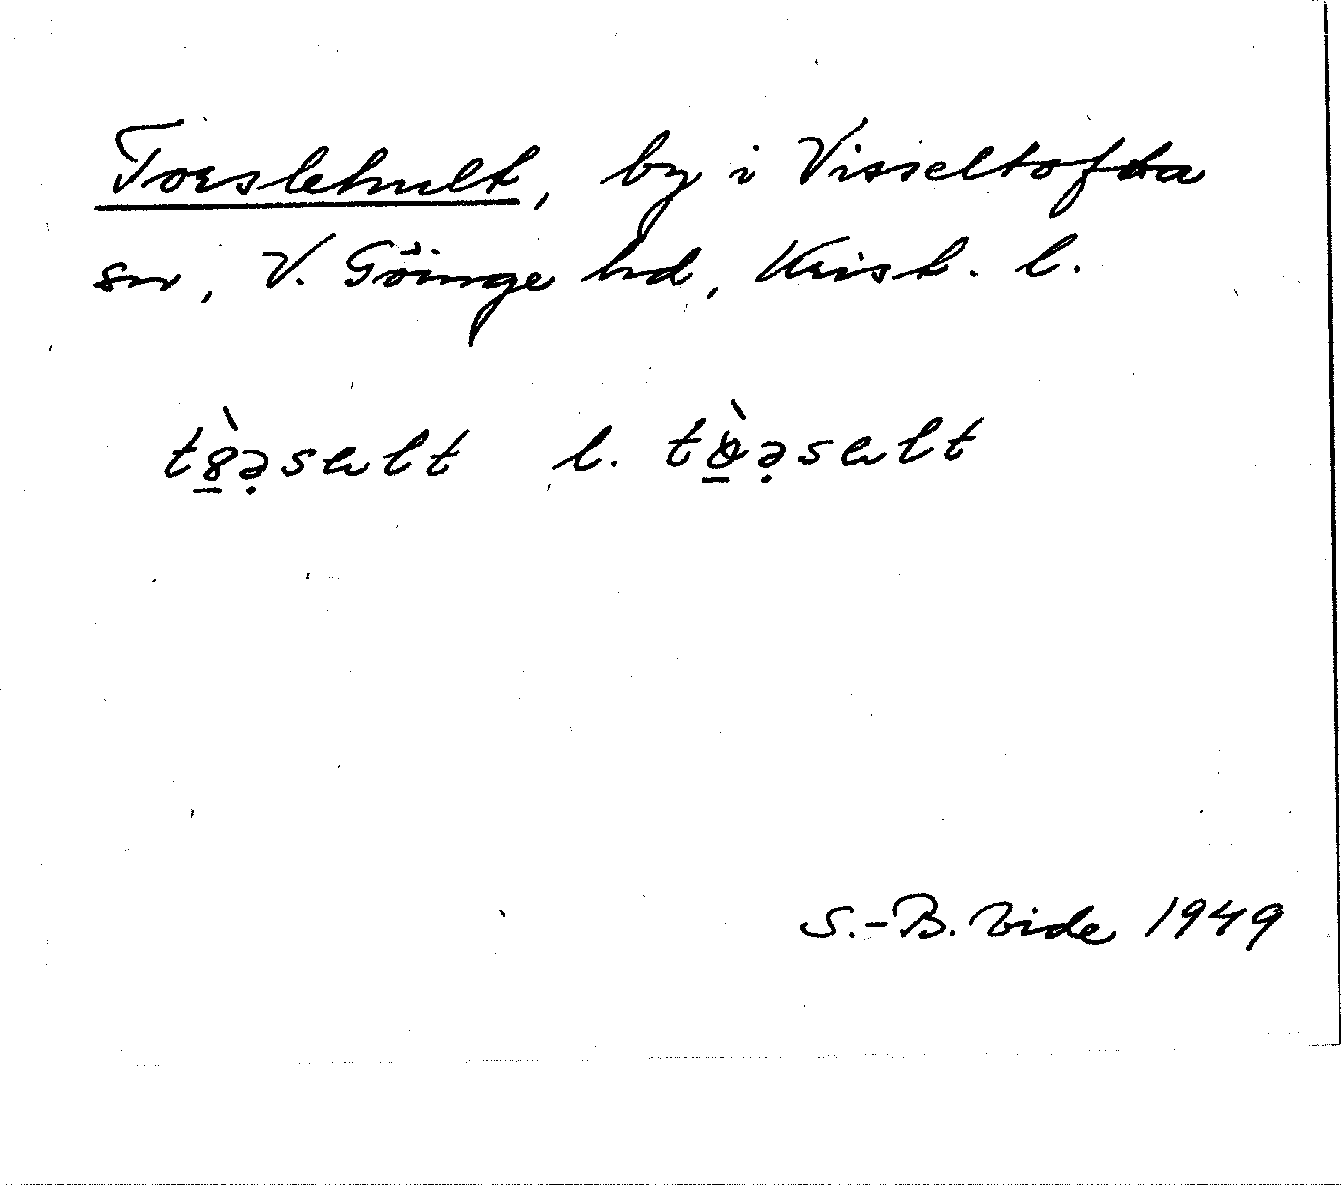 Torslehult, by i Visseltofta
sn, V. Göinge hd, Krist. l.
t8̱̀ə̣sɐlt l. tò̱ə̣sɐlt
S.-B. Vide 1949